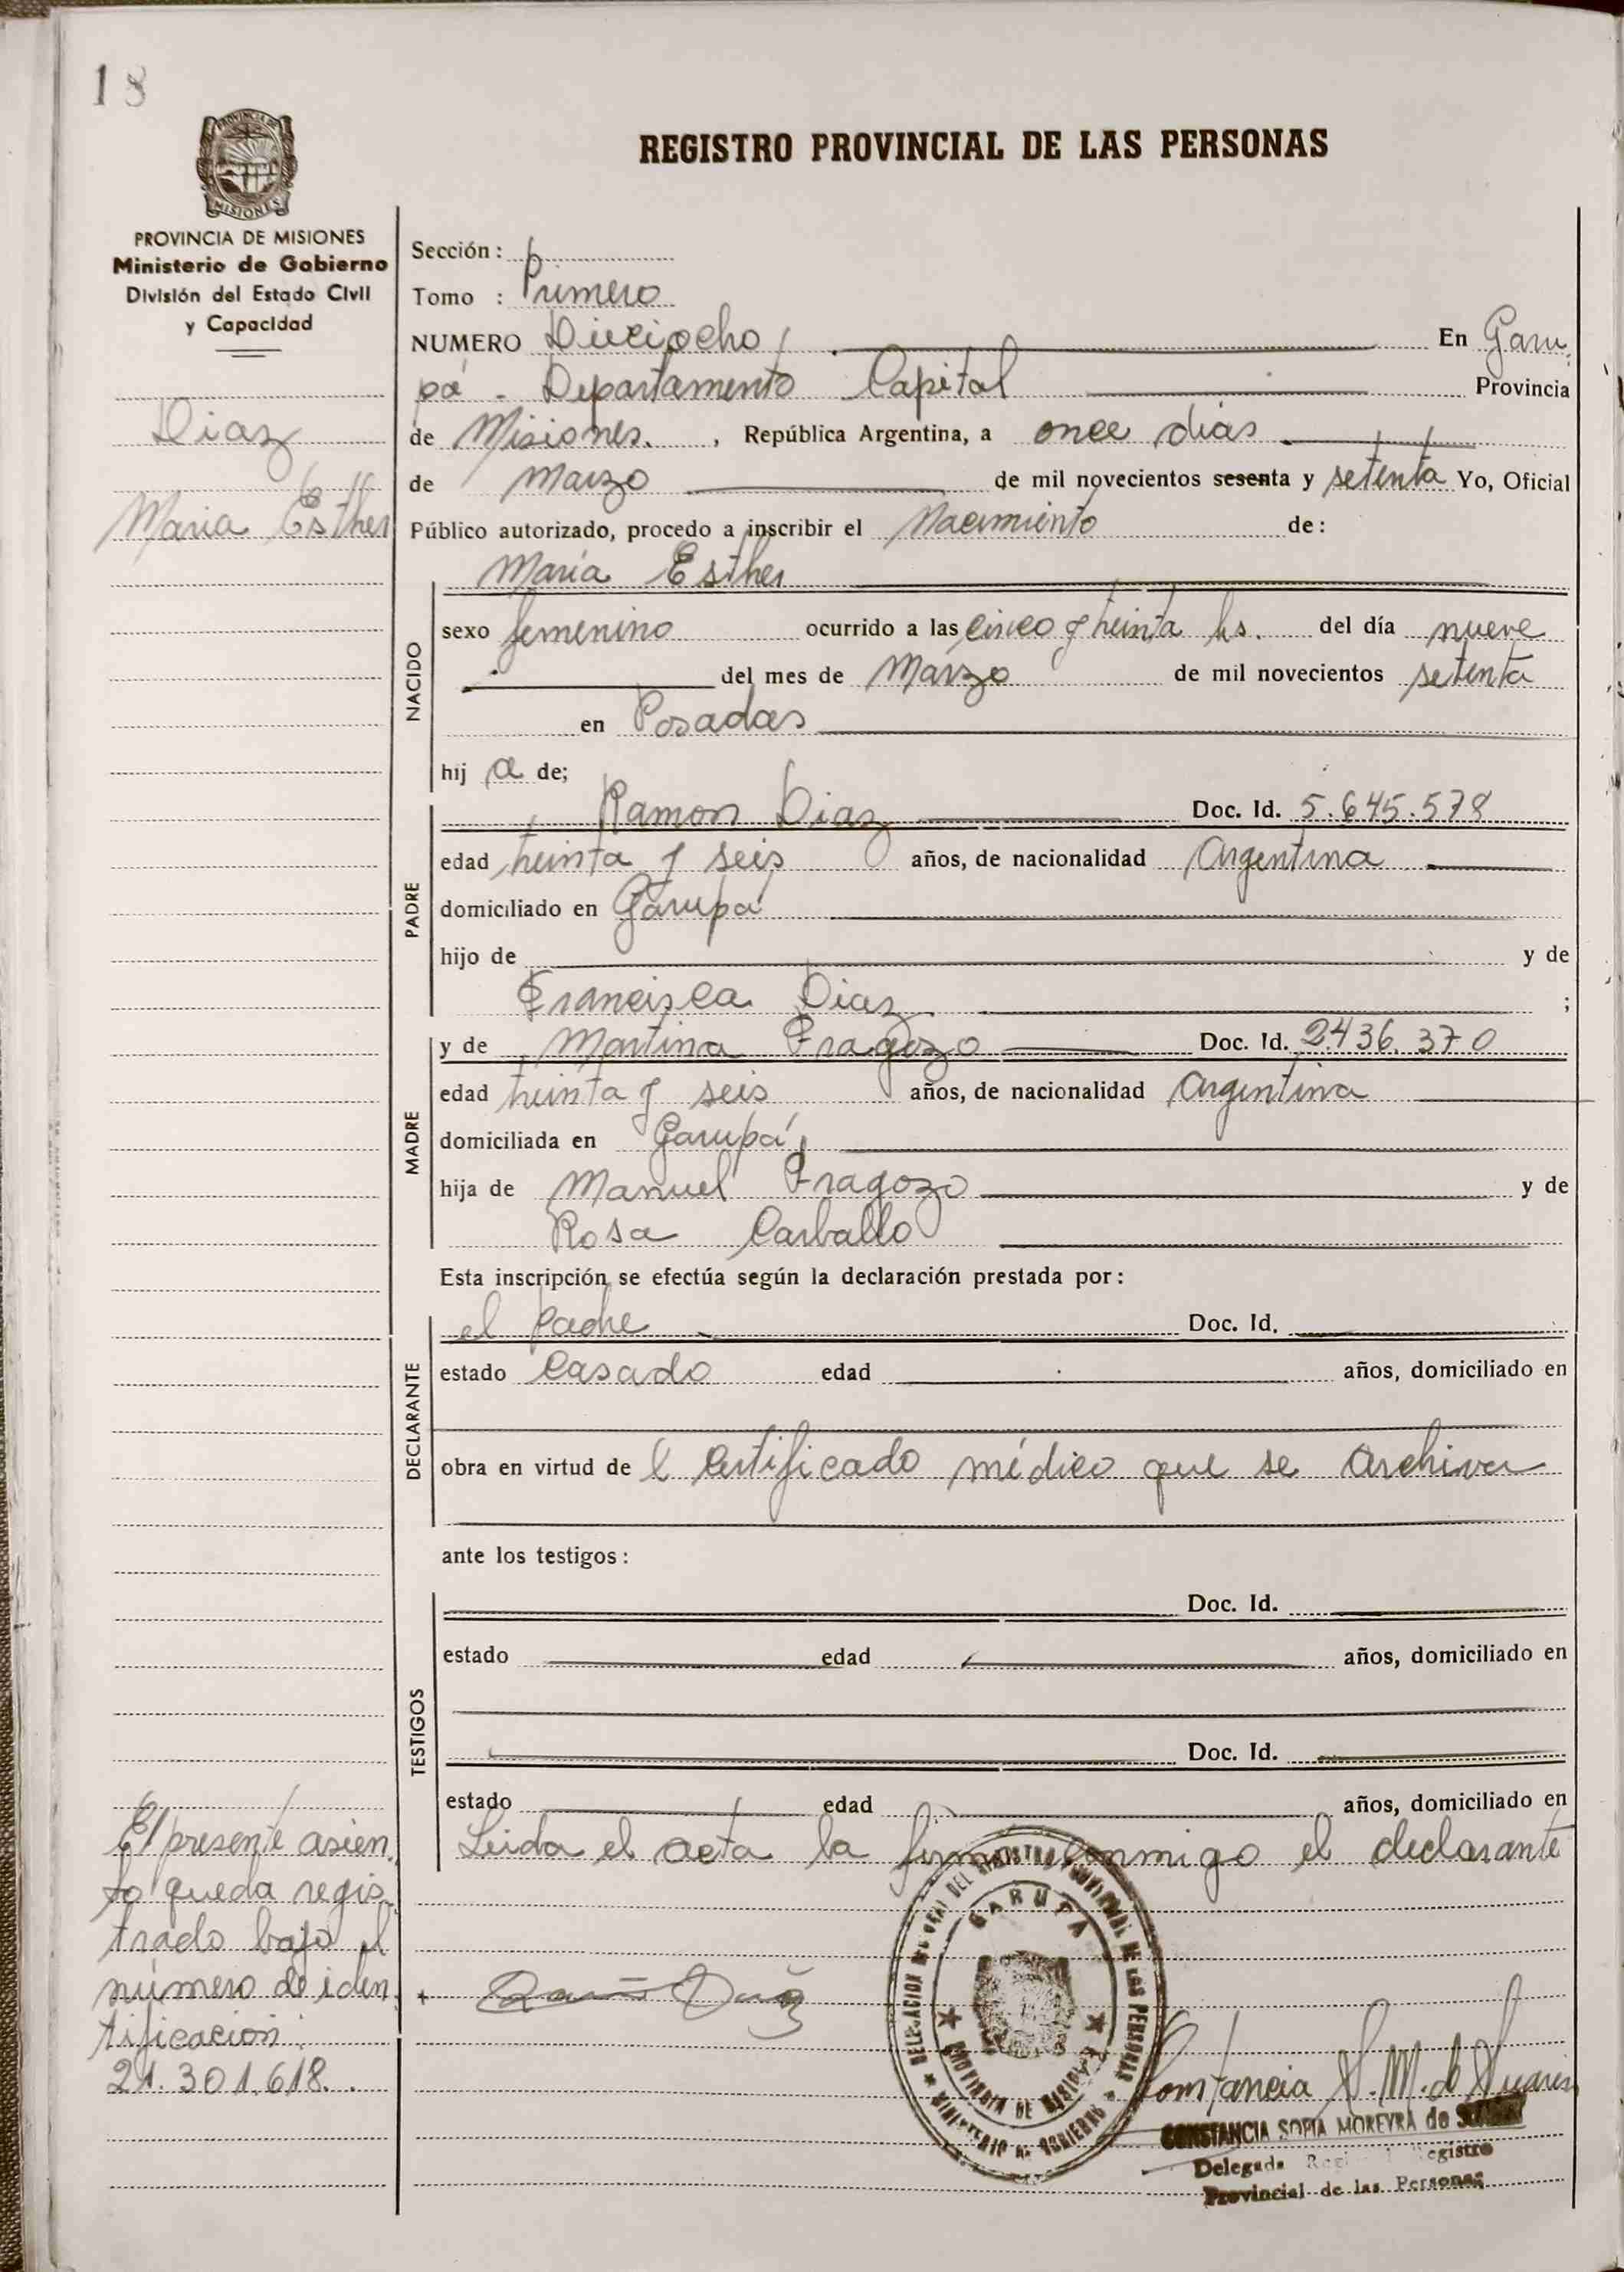 18
PROVINCIA DE
MISIONES
REGISTRO PROVINCIAL DE LAS PERSONAS
PROVINCIA DE MISIONES
Ministerio de Gobierno
División del Estado Civil
y Capacidad
Diaz
Maria Esther
Sección:
Tomo : Primero
NUMERO Dieciocho En Garu
pá - Departamento Capital Provincia
de Misiones. , República Argentina, a once días
de Marzo de mil novecientos sesenta y setenta Yo, Oficial
Público autorizado, procedo a inscribir el Nacimiento de:
NACIDO
María Esther
sexo femenino ocurrido a las cinco y treinta hs. del día nueve
del mes de Marzo de mil novecientos setenta
en Posadas
hij a de;
PADRE
Ramon Diaz Doc. Id. 5.645.578
edad treinta y seis años, de nacionalidad Argentina
domiciliado en Garupá
hijo de y de
Francisca Diaz ;
MADRE
y de Martina Fragozo Doc. Id. 2.436.370
edad treinta y seis años, de nacionalidad Argentina
domiciliada en Garupá
hija de Manuel Fragozo y de
Rosa Carballo
Esta inscripción se efectúa según la declaración prestada por:
DECLARANTE
el padre Doc. Id.
estado Casado edad años, domiciliado en
obra en virtud de l Certificado médico que se Archiva
ante los testigos:
TESTIGOS
Doc. Id.
estado edad años, domiciliado en
Doc. Id.
estado edad años, domiciliado en
Leida el acta la firma conmigo el declarante
El presente asien
to queda regis
trado bajo el
número de iden
tificacion
21.301.618.
+ Ramón Diaz
DELEGACION DEL REGISTRO PROVINCIAL DE LAS PERSONAS
GARUPA
PROVINCIA DE MISIONES
MINISTERIO DE GOBIERNO
Constancia S. M. de
CONSTANCIA SOFIA MOREYRA de
Delegada Registro
Provincial de las Personas